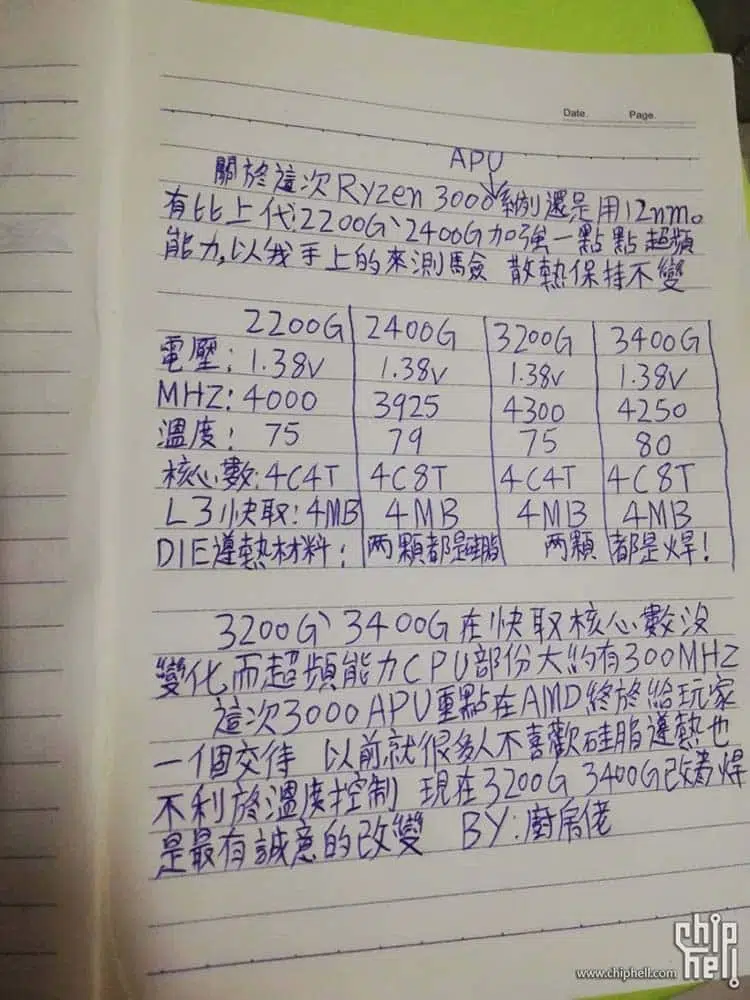 Date. Page.
APU
關於這次Ryzen 3000系列還是用12nm。
有比上代2200G、2400G加強一點點超頻
能力,以我手上的來測驗 散熱保持不變
2200G 2400G 3200G 3400G
電壓: 1.38V 1.38V 1.38V 1.38V
MHZ: 4000 3925 4300 4250
溫度: 75 79 75 80
核心數: 4C4T 4C8T 4C4T 4C8T
L3快取: 4MB 4MB 4MB 4MB
DIE導熱材料: 两顆都是硅脂 两顆都是焊!
3200G、3400G在快取核心數沒
變化,而超頻能力CPU部份大約有300MHZ
這次3000APU重點在AMD終於給玩家
一個交待 以前就很多人不喜歡硅脂導熱也
不利於溫度控制 現在3200G 3400G改為焊
是最有誠意的改變 BY:廚房佬
chip hell
www.chiphell.com